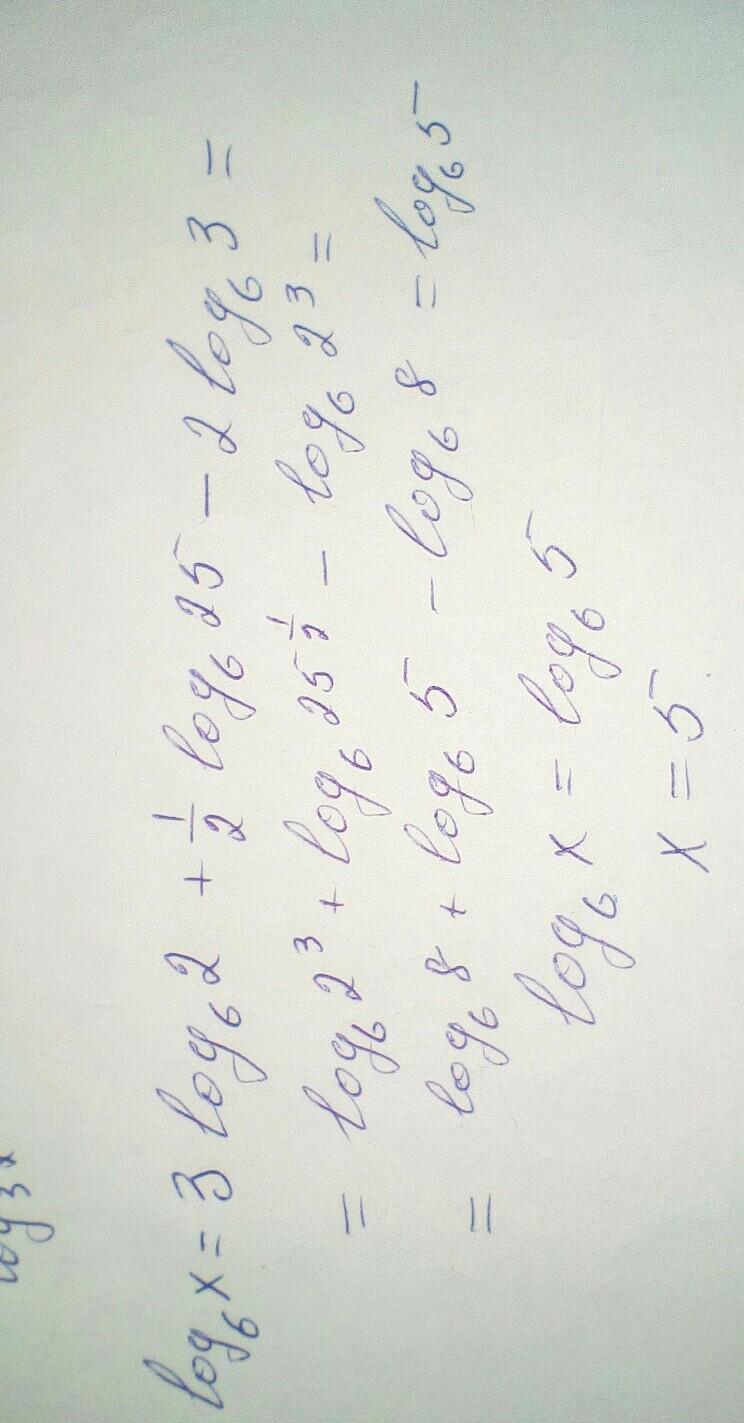 log₆ x = 3 log₆ 2 + ½ log₆ 25 - 2 log₆ 3 =
= log₆ 2³ + log₆ 25^½ - log₆ 2³ =
= log₆ 8 + log₆ 5 - log₆ 8 = log₆ 5
log₆ x = log₆ 5
x = 5